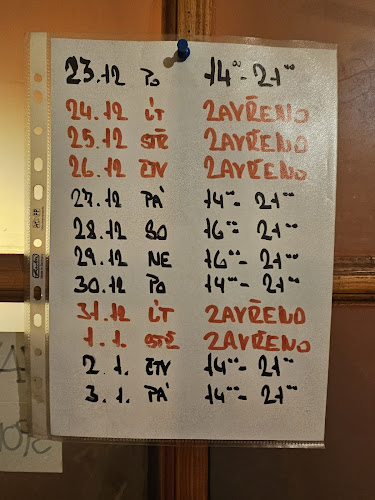 23.12 PO 14⁰⁰-21⁰⁰
24.12 ÚT ZAVŘENO
25.12 STŘ ZAVŘENO
26.12 ČTV ZAVŘENO
27.12 PÁ 14⁰⁰-21⁰⁰
28.12 SO 16⁰⁰-21⁰⁰
29.12 NE 16⁰⁰-21⁰⁰
30.12 PO 14⁰⁰-21⁰⁰
31.12 ÚT ZAVŘENO
1.1. STŘ ZAVŘENO
2.1. ČTV 14⁰⁰-21⁰⁰
3.1. PÁ 14⁰⁰-21⁰⁰